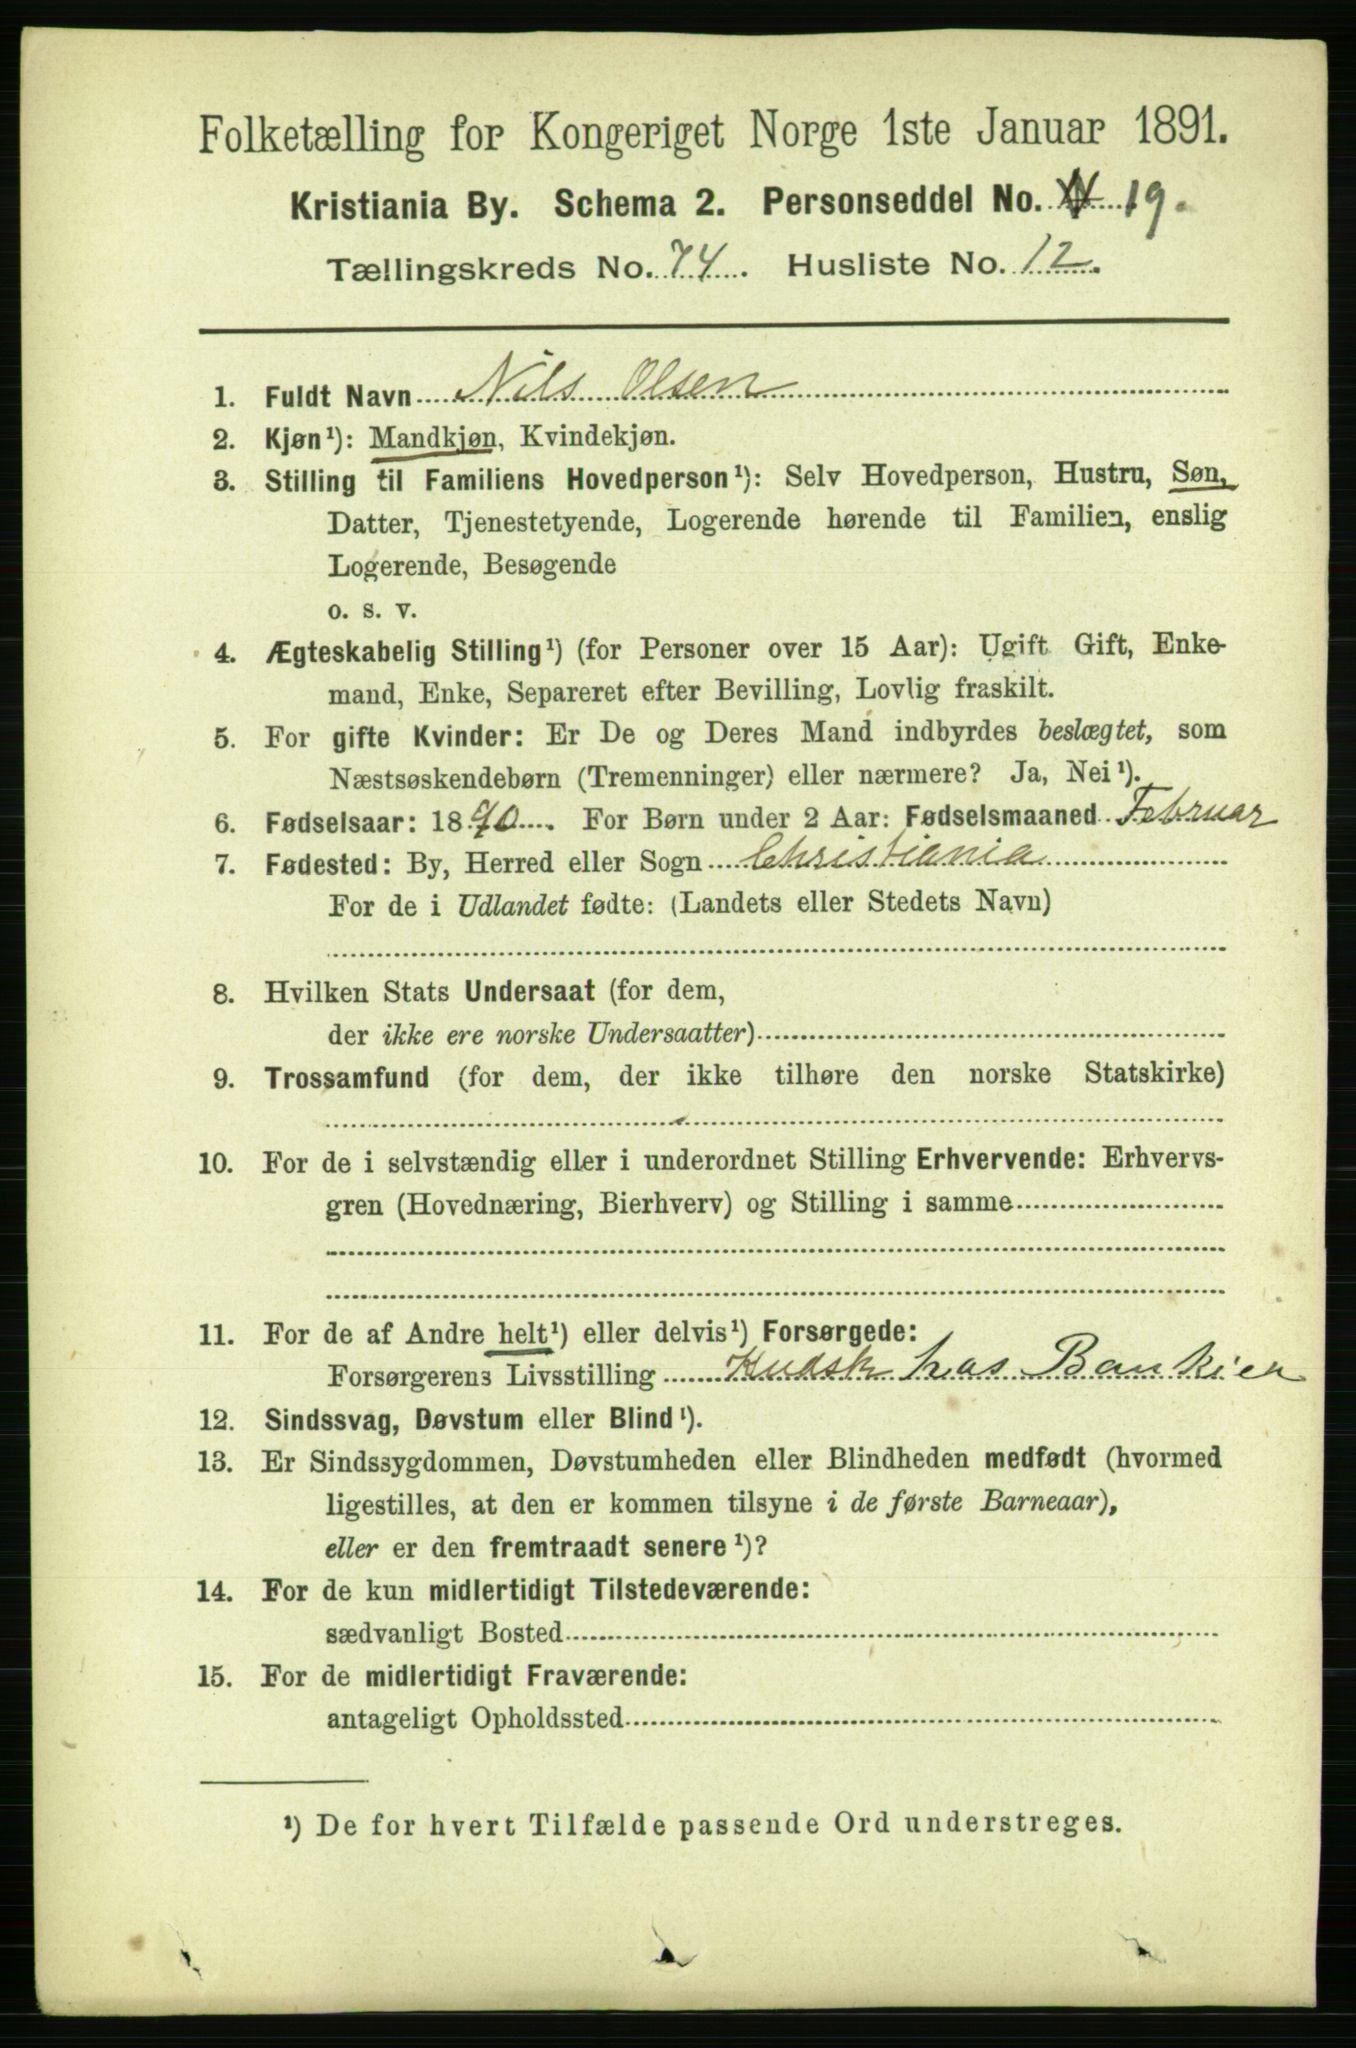 Folketælling for Kongeriget Norge 1ste Januar 1891.
Kristiania By. Schema 2. Personseddel No. 19.
Tællingskreds No. 74. Husliste No. 12.
1. Fuldt Navn Nils Olsen
2. Kjøn¹): Mandkjøn, Kvindekjøn.
3. Stilling til Familiens Hovedperson¹): Selv Hovedperson, Hustru, Søn,
Datter, Tjenestetyende, Logerende hørende til Familien, enslig
Logerende, Besøgende
o. s. v.
4. Ægteskabelig Stilling¹) (for Personer over 15 Aar): Ugift Gift, Enke-
mand, Enke, Separeret efter Bevilling, Lovlig fraskilt.
5. For gifte Kvinder: Er De og Deres Mand indbyrdes beslægtet, som
Næstsøskendebørn (Tremenninger) eller nærmere? Ja, Nei¹).
6. Fødselsaar: 1890. For Børn under 2 Aar: Fødselsmaaned Februar
7. Fødested: By, Herred eller Sogn Christiania
For de i Udlandet fødte: (Landets eller Stedets Navn)
8. Hvilken Stats Undersaat (for dem,
der ikke ere norske Undersaatter)
9. Trossamfund (for dem, der ikke tilhøre den norske Statskirke)
10. For de i selvstændig eller i underordnet Stilling Erhvervende: Erhvervs-
gren (Hovednæring, Bierhverv) og Stilling i samme
11. For de af Andre helt¹) eller delvis¹) Forsørgede:
Forsørgerens Livsstilling Kudsk hos Bankier
12. Sindssvag, Døvstum eller Blind¹).
13. Er Sindssygdommen, Døvstumheden eller Blindheden medfødt (hvormed
ligestilles, at den er kommen tilsyne i de første Barneaar),
eller er den fremtraadt senere¹)?
14. For de kun midlertidigt Tilstedeværende:
sædvanligt Bosted
15. For de midlertidigt Fraværende:
antageligt Opholdssted
¹) De for hvert Tilfælde passende Ord understreges.